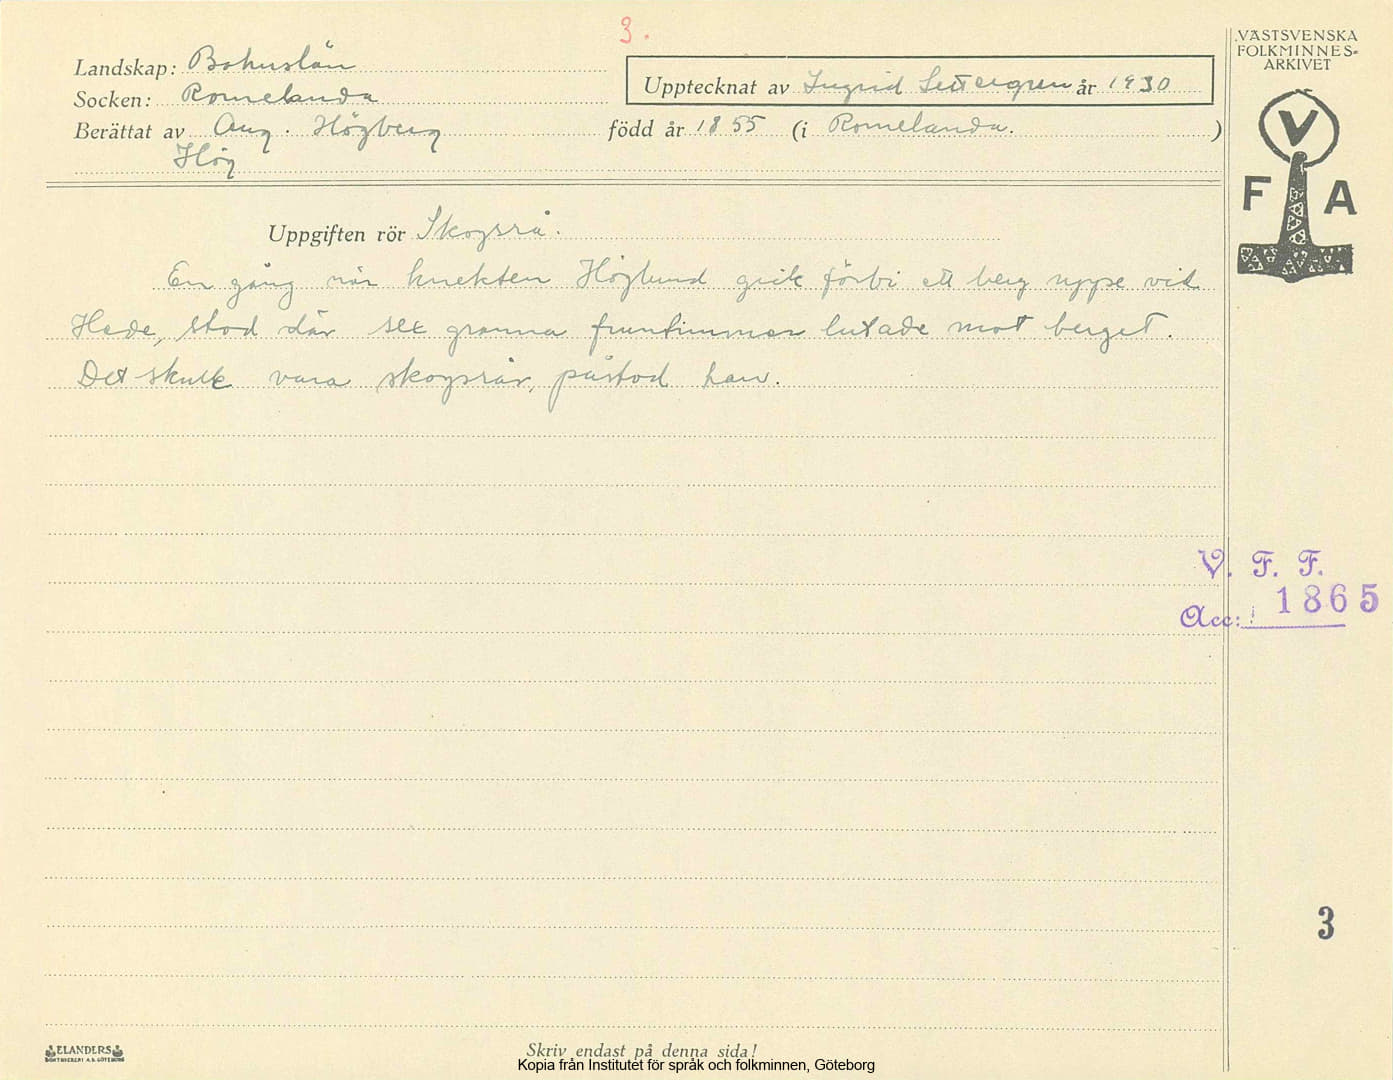 3.
VÄSTSVENSKA
FOLKMINNES-
ARKIVET
Landskap: Bohuslän
Socken: Romelanda
Upptecknat av Ingrid Settergren år 1930
Berättat av Aug. Högberg född år 1855 (i Romelanda. )
Hög
V
F A
Uppgiften rör Skogsrå.
En gång när knekten Höglund gick förbi ett berg uppe vid
Hede, stod där sex granna fruntimmer lutade mot berget.
Det skulle vara skogsrår, påstod han.
V. F. F.
Acc: 1865
3
ELANDERS
BOKTRYCKERI A.B. GÖTEBORG
Skriv endast på denna sida!
Kopia från Institutet för språk och folkminnen, Göteborg